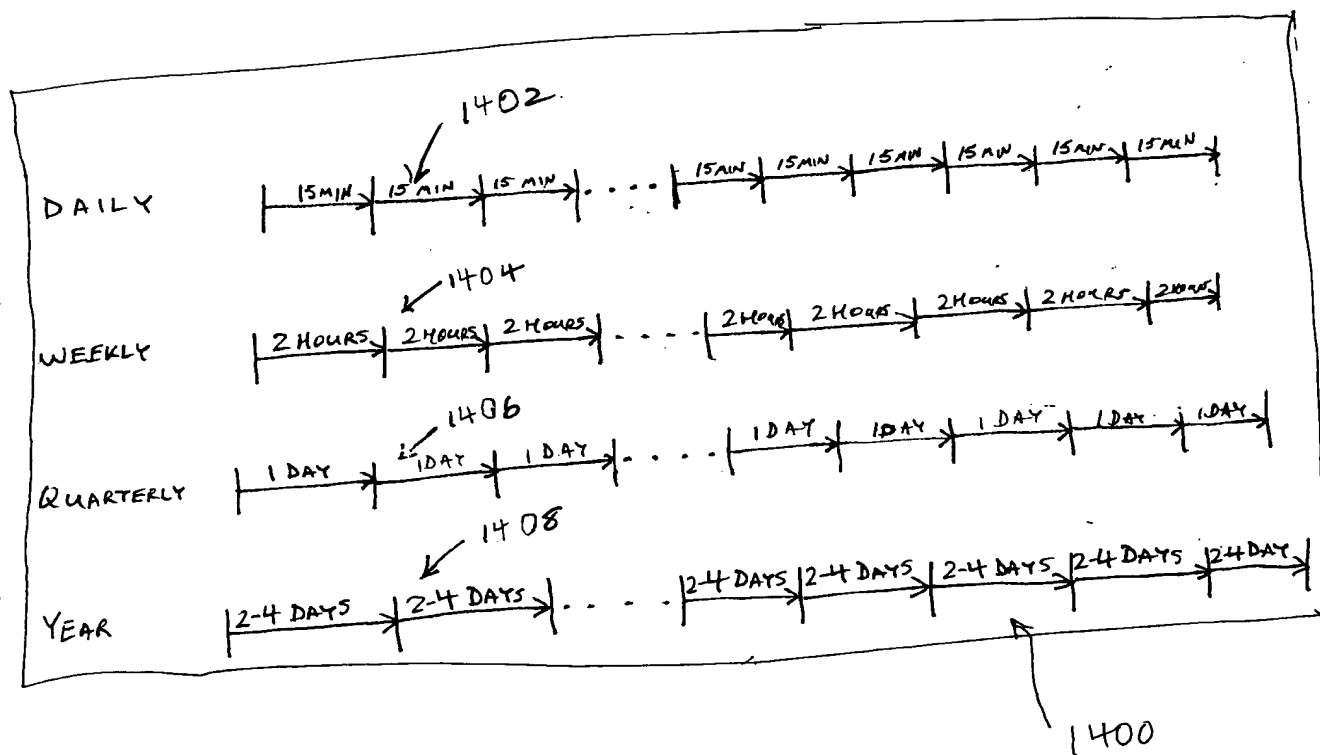 1402
DAILY 15MIN 15 MIN 15 MIN .... 15MIN 15 MIN 15 MIN 15 MIN 15 MIN 15 MIN
1404
WEEKLY 2 HOURS 2 HOURS 2 HOURS .... 2 HOURS 2 HOURS 2 HOURS 2 HOURS 2 HOURS
1406
QUARTERLY 1 DAY 1 DAY 1 DAY .... 1 DAY 1 DAY 1 DAY 1 DAY 1 DAY
1408
YEAR 2-4 DAYS 2-4 DAYS .... 2-4 DAYS 2-4 DAYS 2-4 DAYS 2-4 DAYS 2-4 DAY
1400